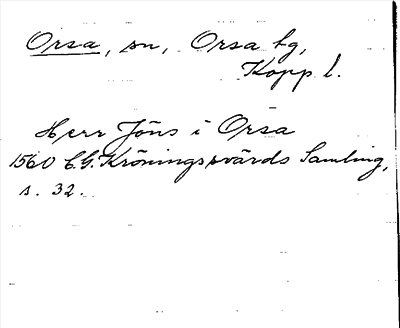 Orsa, sn, Orsa tg,
Kopp l.
Herr Jöns i Orsa
1560 C.G. Kröningssvärds Samling,
s. 32.